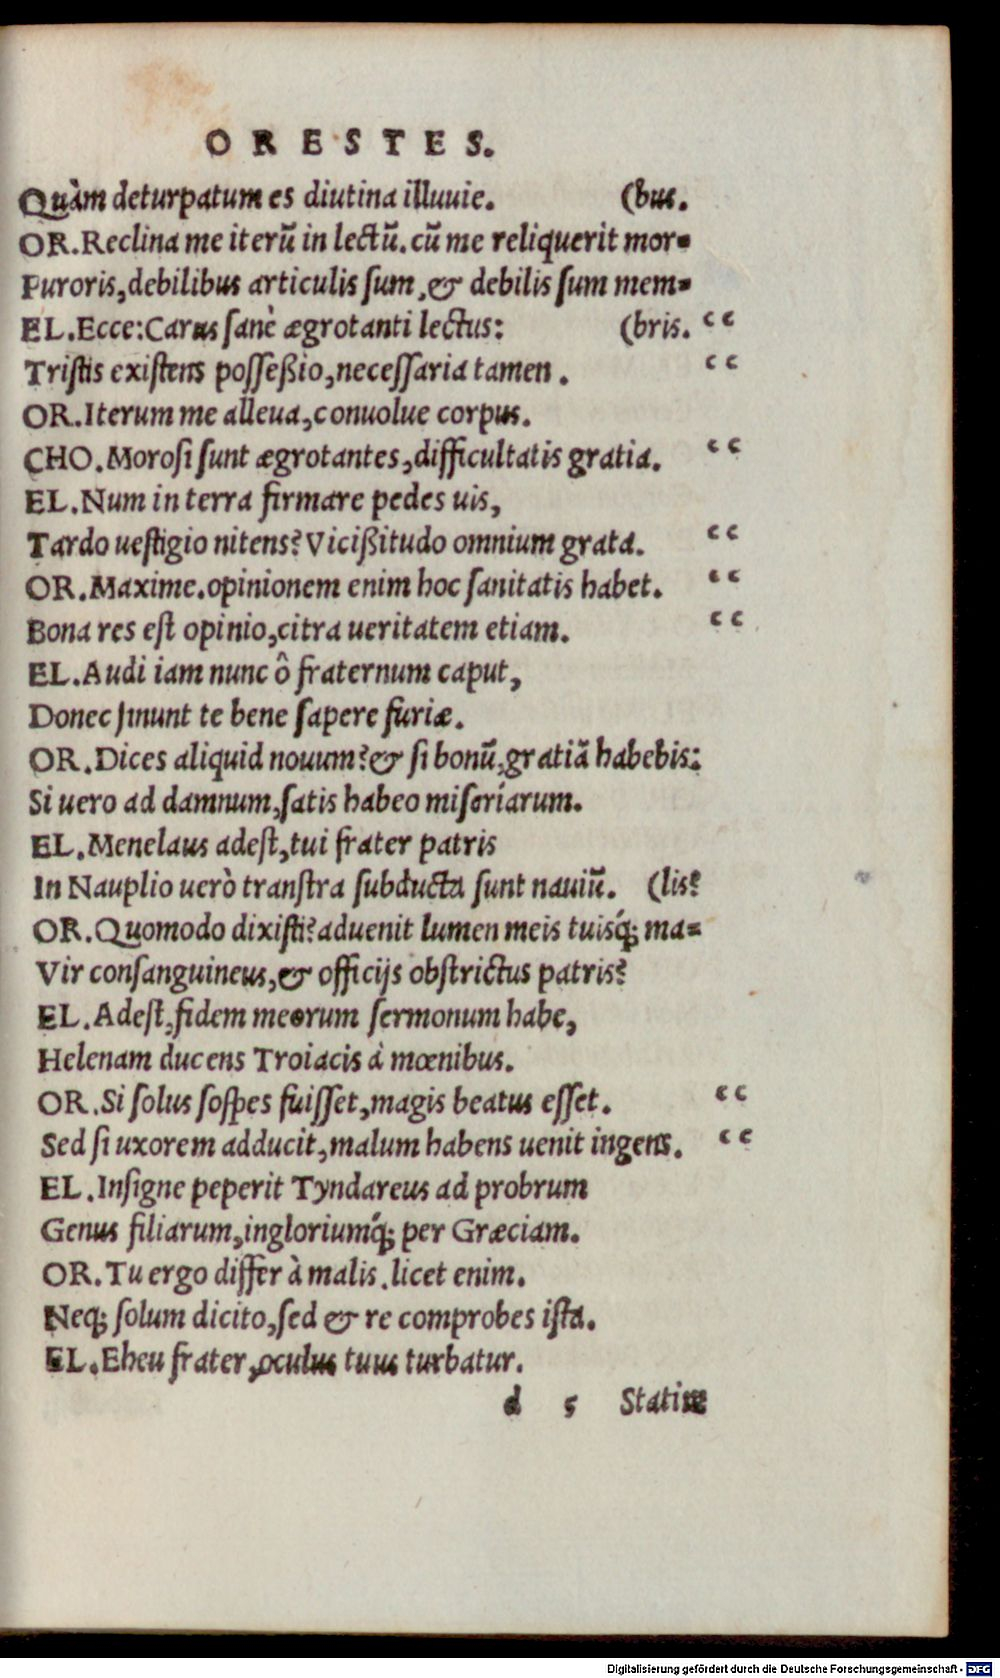 ORESTES.
Quàm deturpatum es diutina illuuie. (bus.
OR. Reclina me iterũ in lectũ. cũ me reliquerit mor-
Furoris, debilibus articulis sum, & debilis sum mem-
EL. Ecce: Carus sanè ægrotanti lectus: (bris. “
Tristis existens possessio, necessaria tamen. “
OR. Iterum me alleua, conuolue corpus.
CHO. Morosi sunt ægrotantes, difficultatis gratia. “
EL. Num in terra firmare pedes uis,
Tardo uestigio nitens? Vicissitudo omnium grata. “
OR. Maxime. opinionem enim hoc sanitatis habet. “
Bona res est opinio, citra ueritatem etiam. “
EL. Audi iam nunc ô fraternum caput,
Donec sinunt te bene sapere furiæ.
OR. Dices aliquid nouum? & si bonũ, gratiã habebis:
Si uero ad damnum, satis habeo miseriarum.
EL. Menelaus adest, tui frater patris
In Nauplio uerò transtra subducta sunt nauiũ. (lis?
OR. Quomodo dixisti? aduenit lumen meis tuisq́; ma-
Vir consanguineus, & officijs obstrictus patris?
EL. Adest, fidem meorum sermonum habe,
Helenam ducens Troiacis à mœnibus.
OR. Si solus sospes fuisset, magis beatus esset. “
Sed si uxorem adducit, malum habens uenit ingens. “
EL. Insigne peperit Tyndareus ad probrum
Genus filiarum, ingloriumq́; per Græciam.
OR. Tu ergo differ à malis. licet enim.
Neq; solum dicito, sed & re comprobes ista.
EL. Eheu frater, oculus tuus turbatur.
d 5 Statim
Digitalisierung gefördert durch die Deutsche Forschungsgemeinschaft - DFG